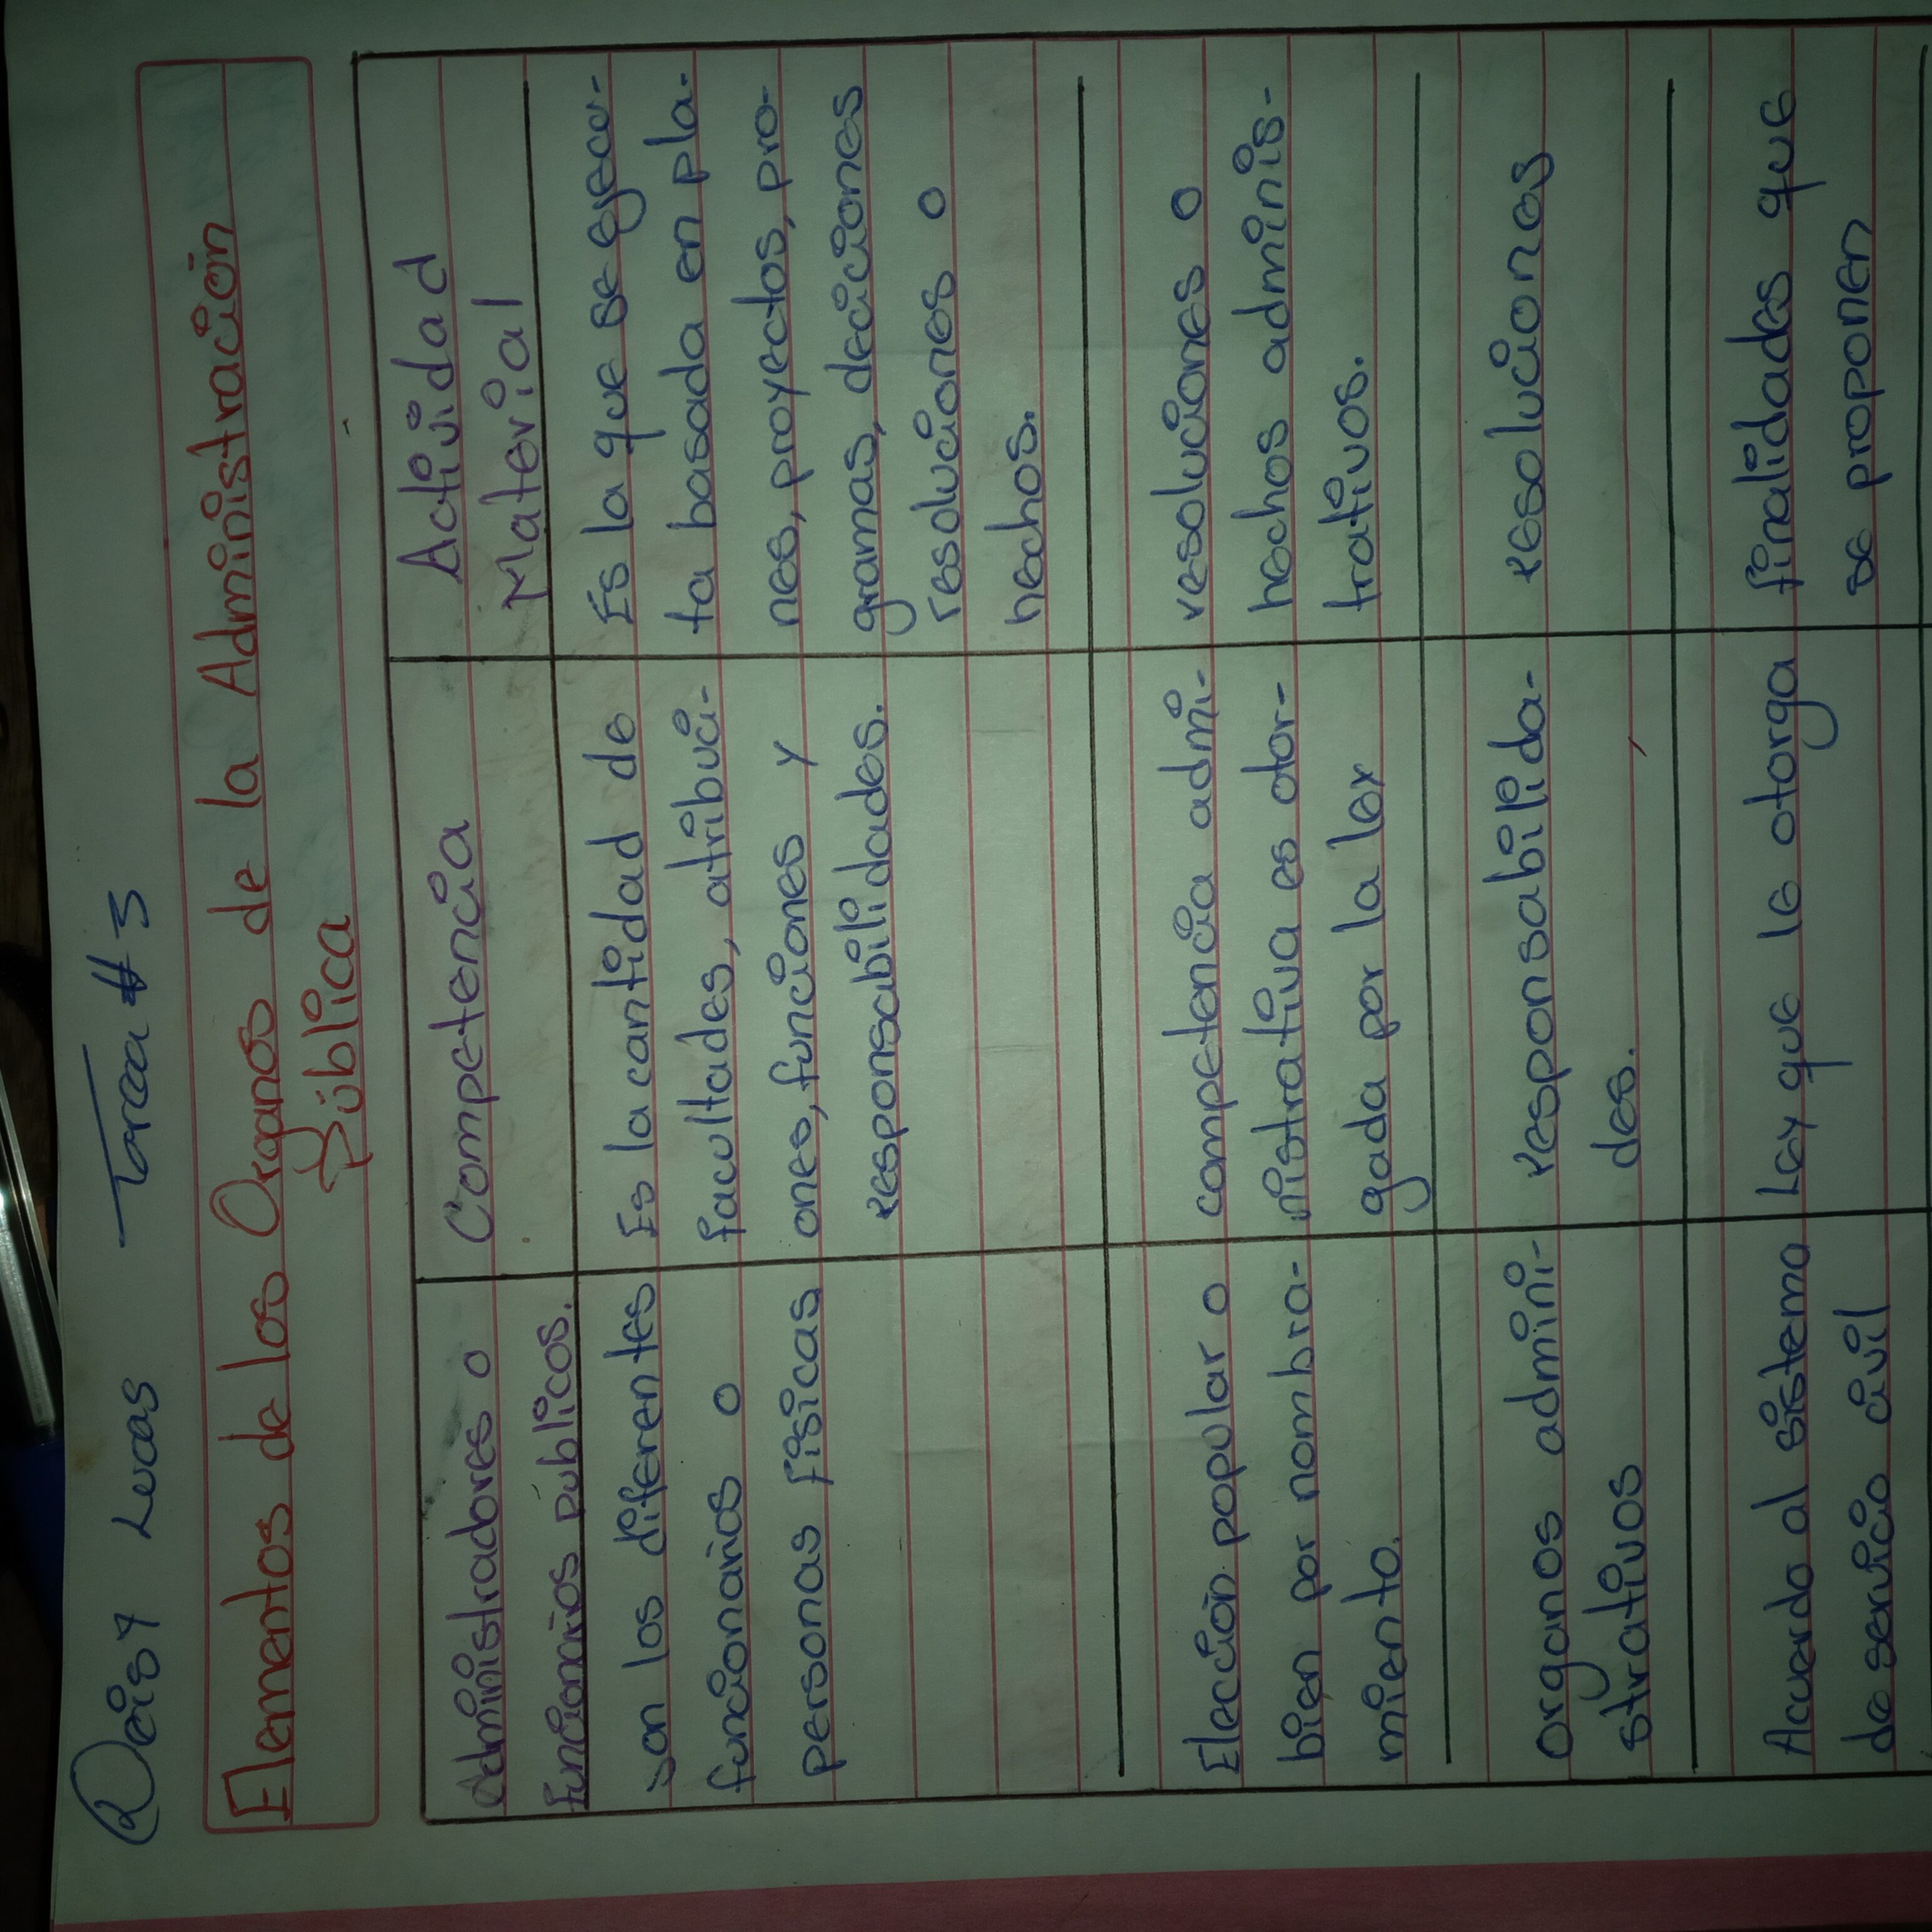 Deisy Lucas Tarea # 3
Elementos de los Organos de la Administración
Pública
Administradores o
funcionarios públicos.
Competencia
Actividad
Material
son los diferentes
funcionarios o
personas físicas
Es la cantidad de
facultades, atribuci-
ones, funciones y
responsabilidades.
Es la que se ejecu-
ta basada en pla-
nes, proyectos, pro-
gramas, deciciones
resoluciones o
hechos.
Elección popular o
bien por nombra-
miento.
competencia admi-
nistrativa es otor-
gada por la ley
resoluciones o
hechos adminis-
trativos.
organos admini-
strativos
responsabilida-
des.
resoluciones
Acuerdo al sistema
de servicio civil
Ley que le otorga
finalidades que
se proponen